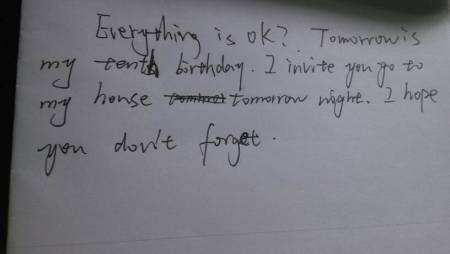 Everything is ok? Tomorrow is
my tenth birthday. I invite you go to
my house tomorrow night. I hope
you don't forget.